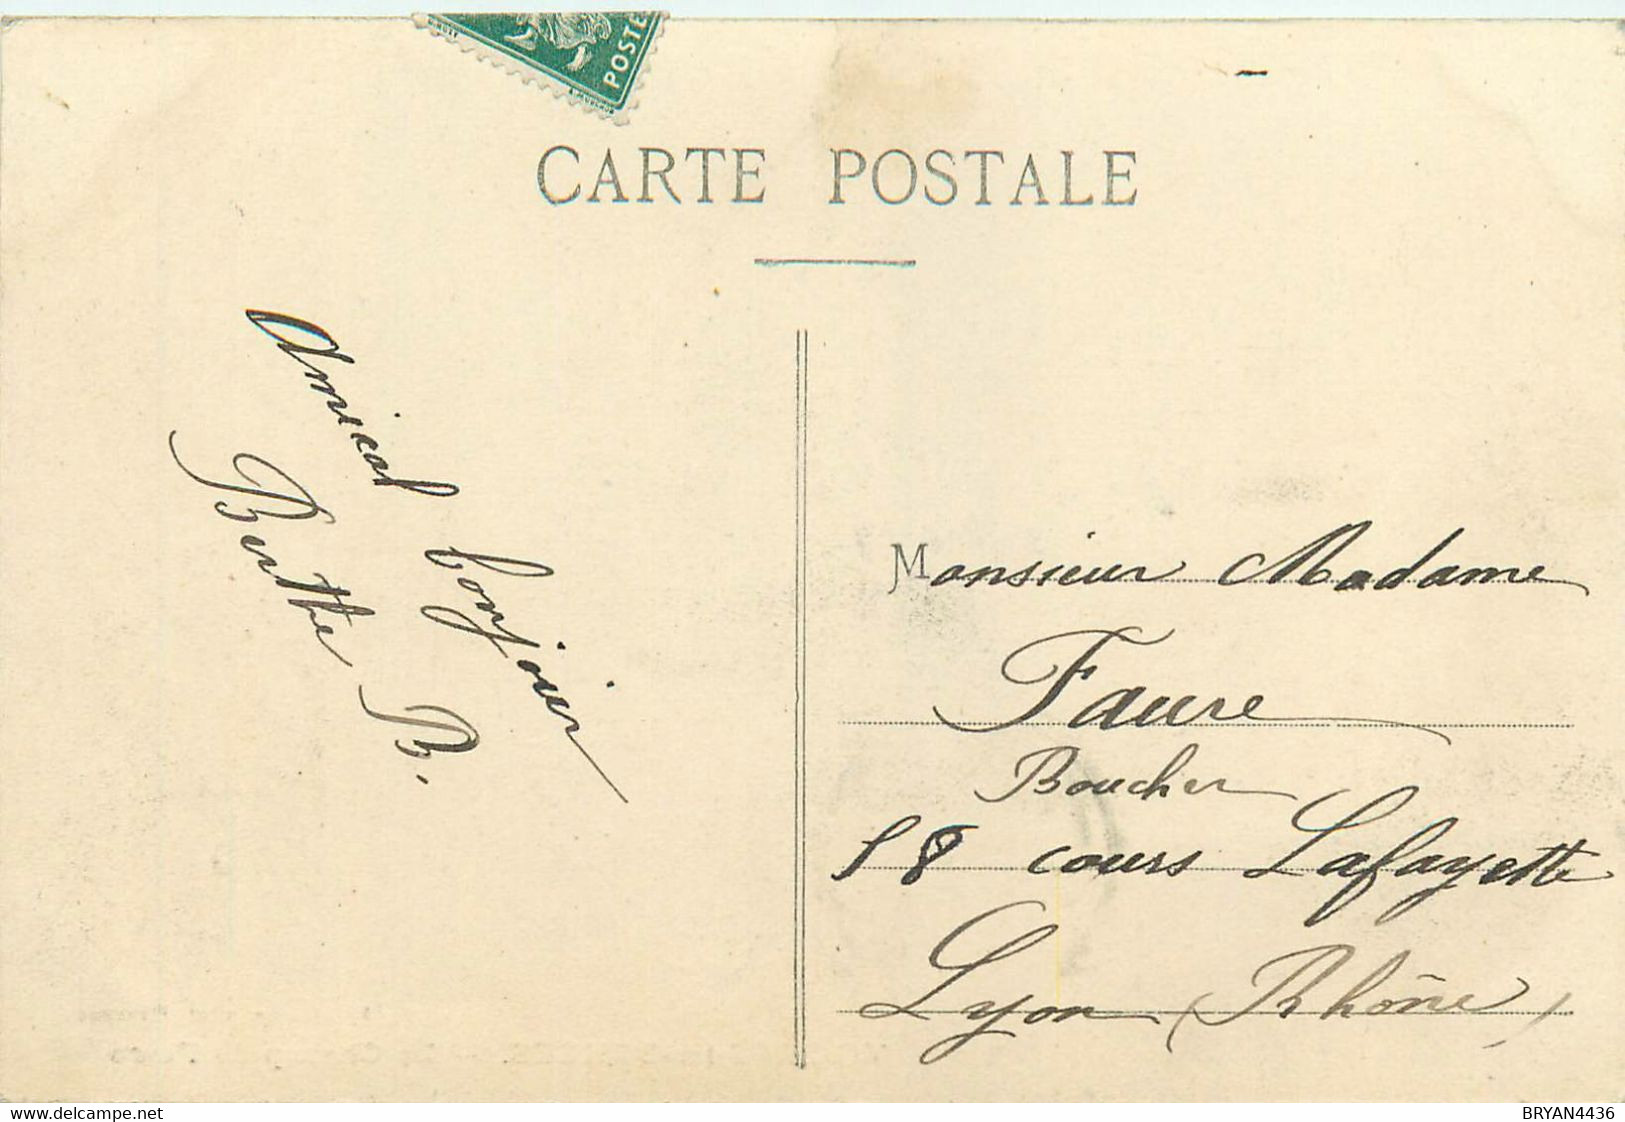 POSTES
CARTE POSTALE
Amical bonjour
Berthe B.
Monsieur Madame
Faure
Boucher
18 cours Lafayette
Lyon (Rhône)
www.delcampe.net
BRYAN4436